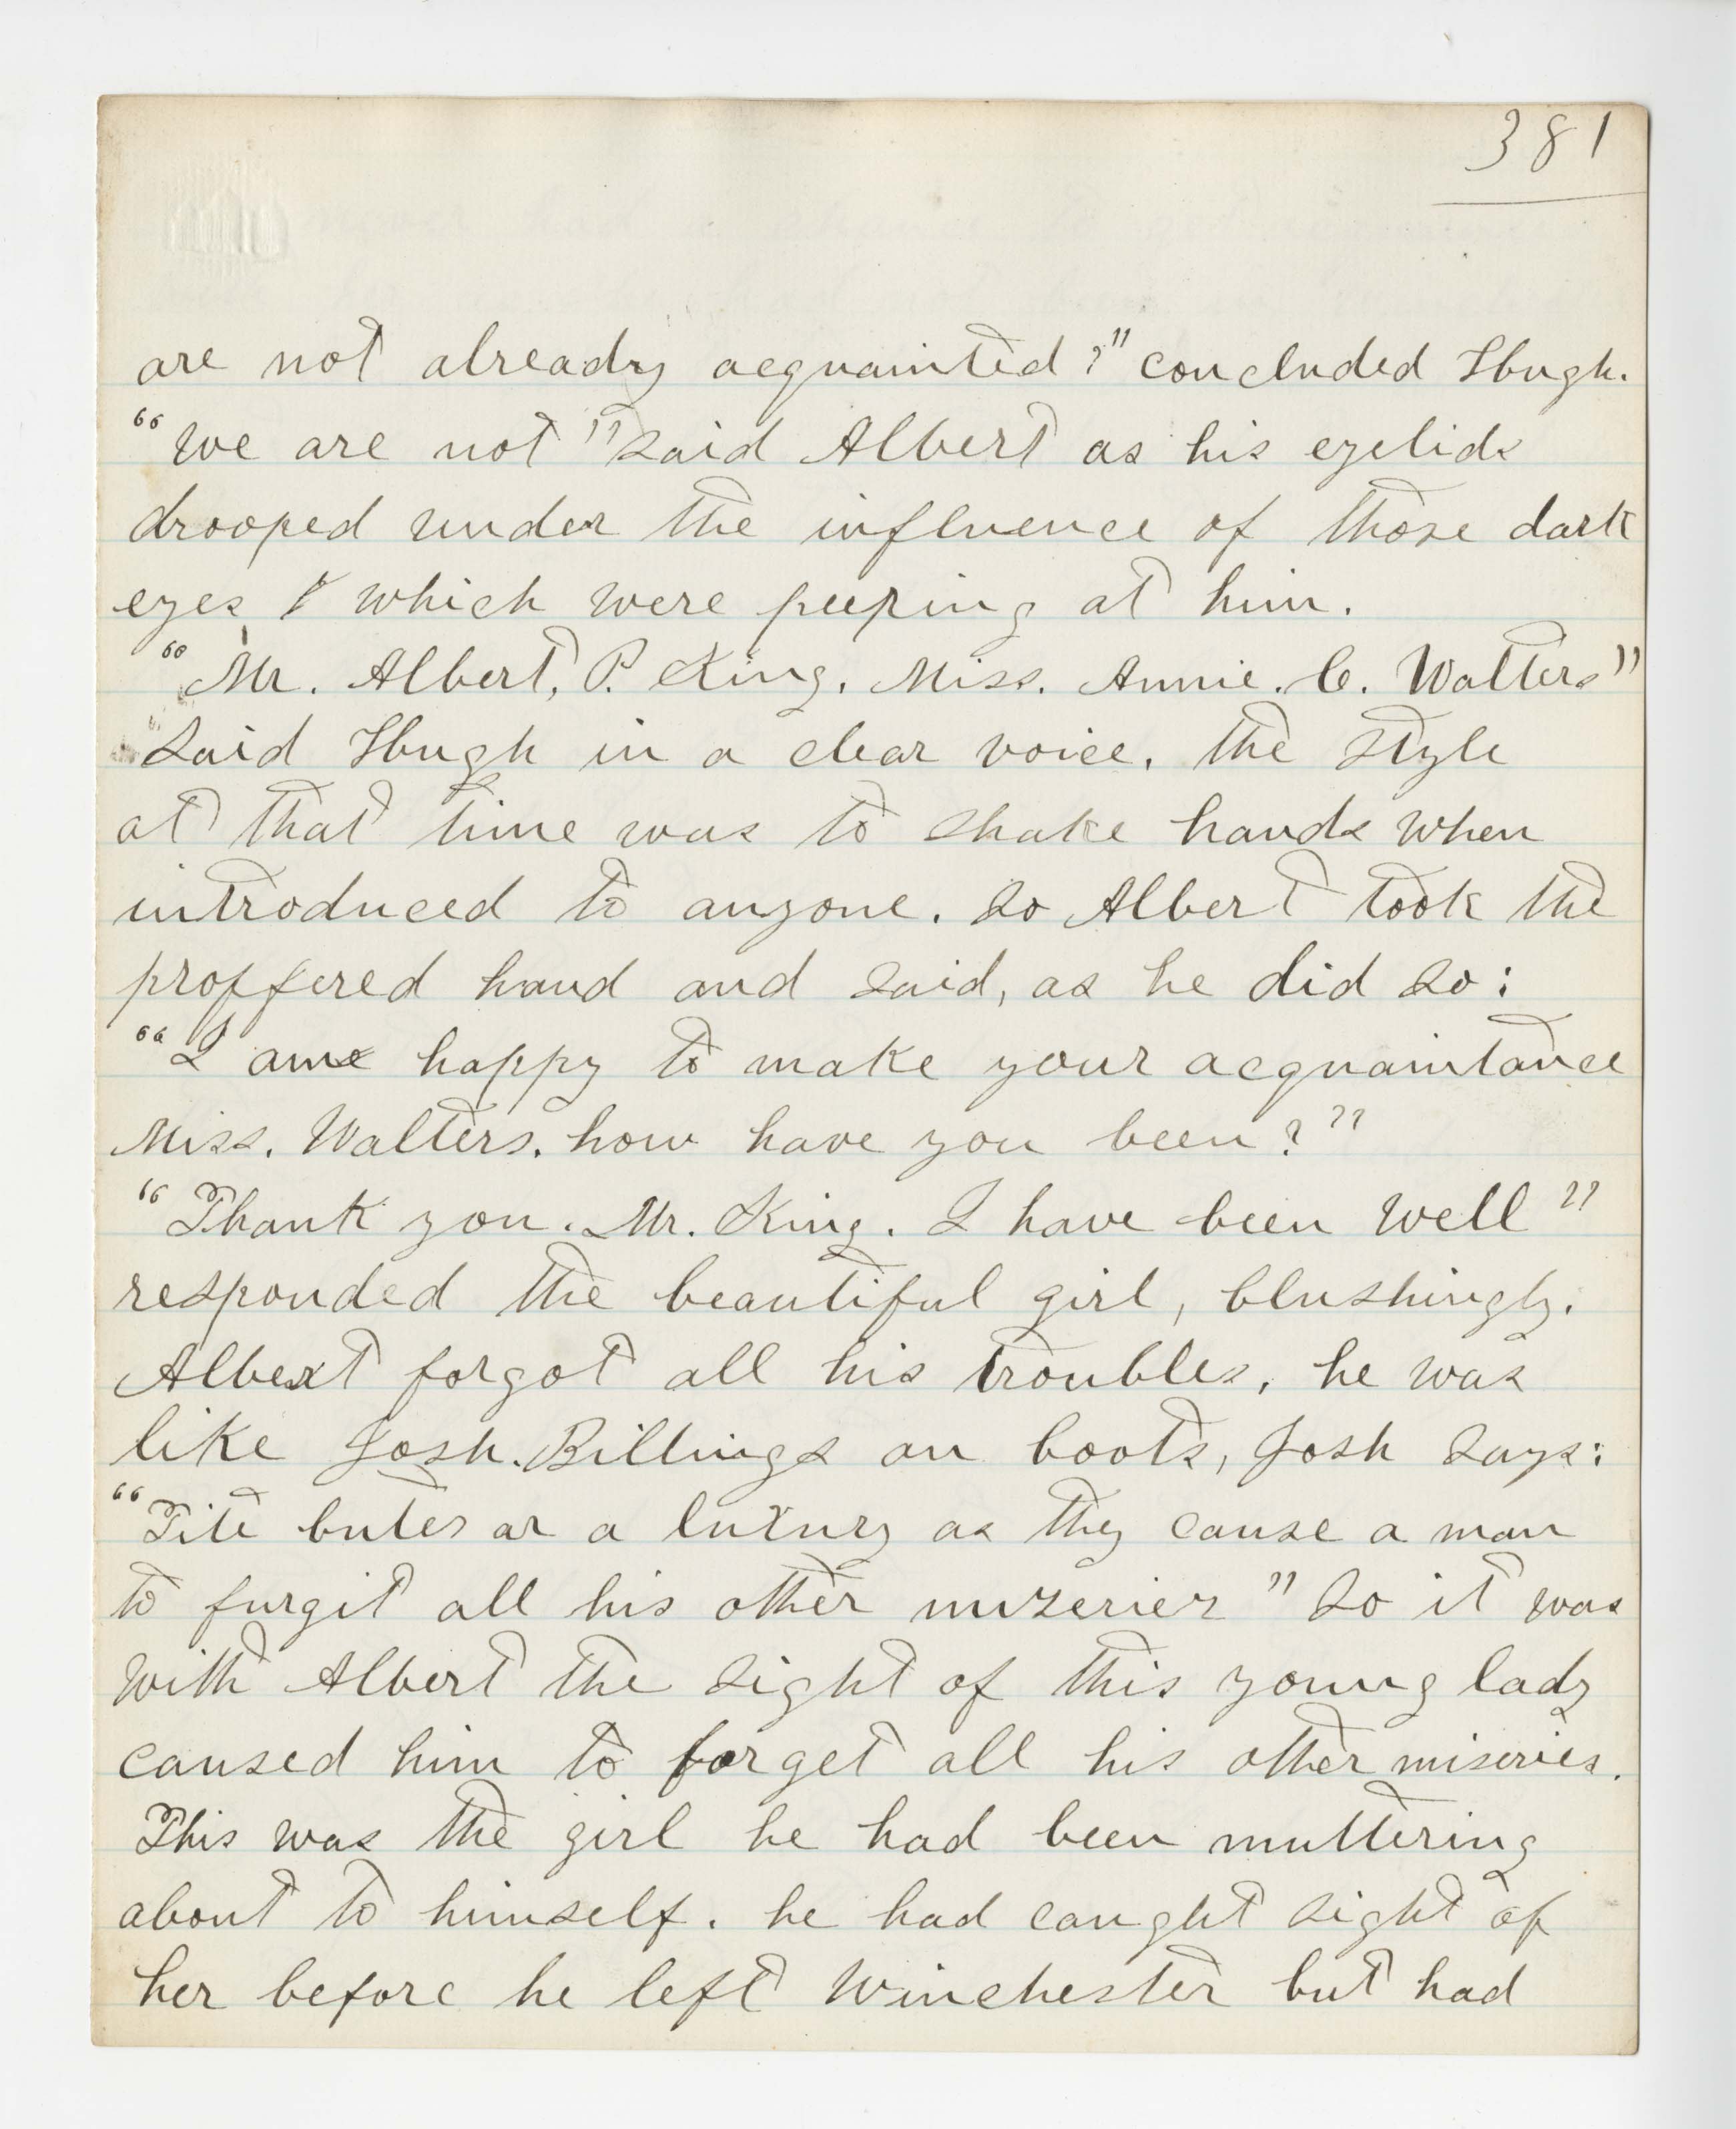 381
are not already acquainted?" concluded Hugh.
"We are not" said Albert as his eyelids
drooped under the influence of those dark
eyes which were peeping at him.
"Mr. Albert, P. King. Miss. Annie. C. Walters"
said Hugh in a clear voice. the style
at that time was to shake hands when
introduced to anyone. so Albert took the
proffered hand and said, as he did so:
"I am happy to make your acquaintance
Miss. Walters. how have you been?"
"Thank you. Mr. King. I have been well"
responded the beautiful girl, blushingly.
Albert forgot all his troubles, he was
like Josh. Billings on boots, Josh says:
"Tite butes ar a luxury as they cause a man
to furgit all his other mizeriez" So it was
with Albert the sight of this young lady
caused him to forget all his other miseries.
This was the girl he had been muttering
about to himself. he had caught sight of
her before he left Winchester but had